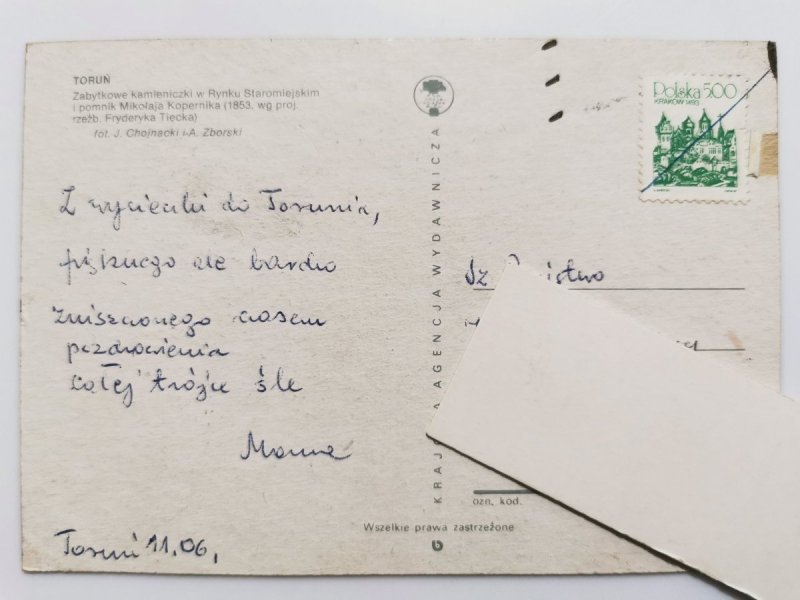 TORUŃ
Zabytkowe kamieniczki w Rynku Staromiejskim
i pomnik Mikołaja Kopernika (1853, wg proj.
rzeźb. Fryderyka Tiecka)
fot. J. Chojnacki i A. Zborski
Z wycieczki do Torunia,
pięknego ale bardzo
zniszczonego czasem
pozdrowienia
całej trójce śle
Toruń 11.06,
KRAJO A AGENCJA WYDAWNICZA
Polska 5.00
KRAKÓW 1493
Sz
ozn. kod.
Wszelkie prawa zastrzeżone